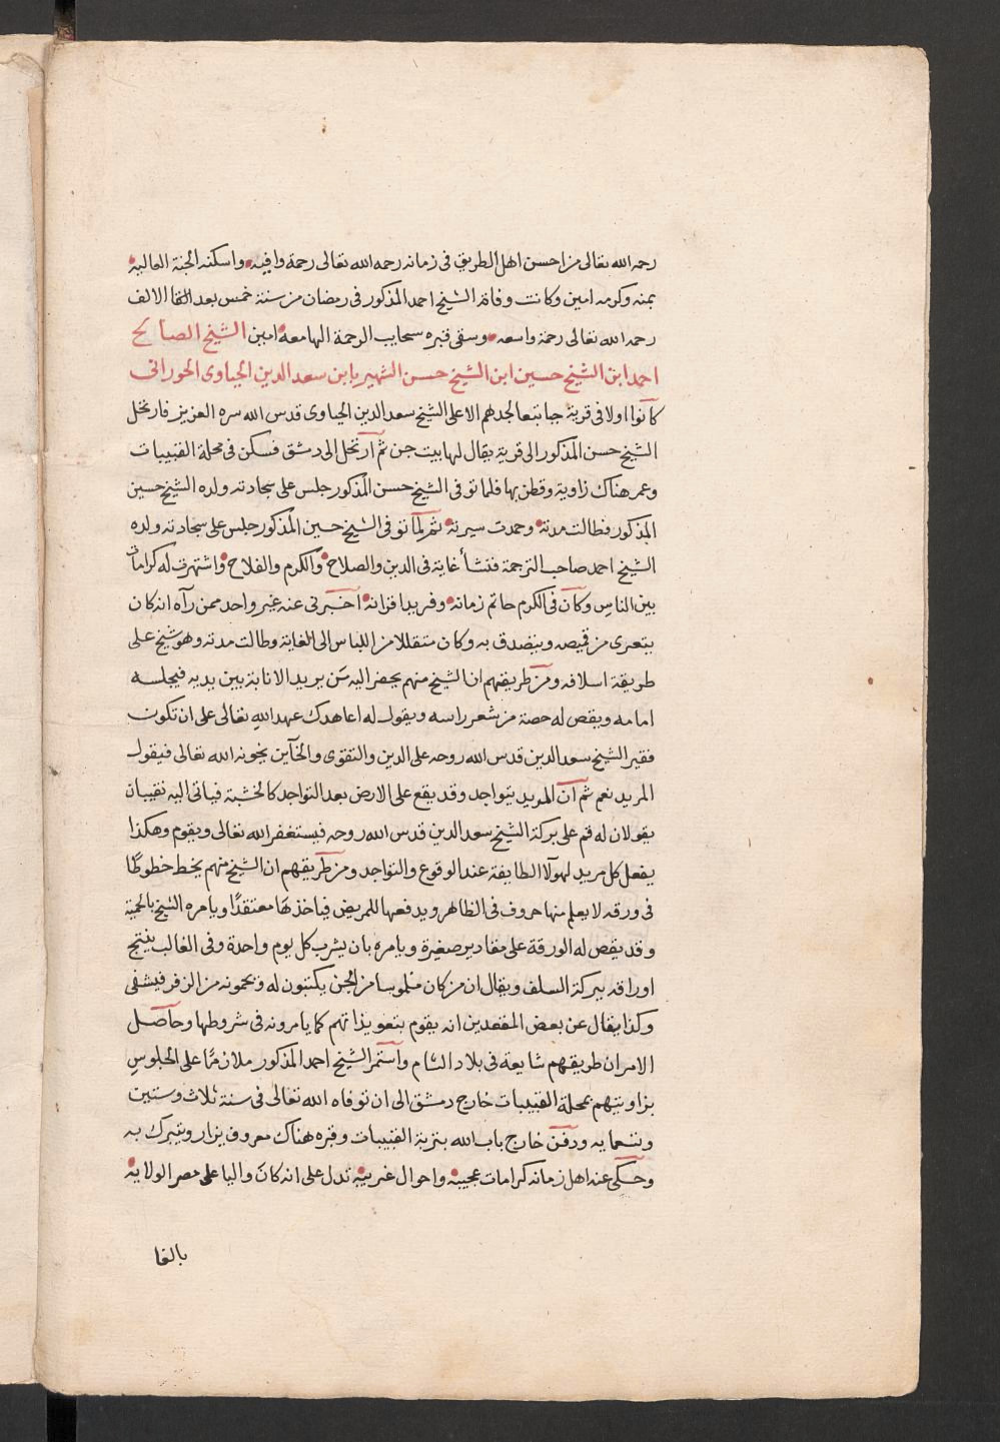 رحمه الله تعالى من احسن اهل الطريق فى زمانه رحمه الله تعالى رحمة وافيه واسكنه الجنة العاليه
بمنه وكرمه امين وكانت وفاة الشيخ احمد المذكور فى رمضان من سنة خمس بعد الالف
رحمه الله تعالى رحمة واسعه وسقى قبره سحايب الرحمة الهامعه امين الشيخ الصالح
احمد ابن الشيخ حسين ابن الشيخ حسن الشهير بابن سعد الدين الجباوى الحورانى
كانوا اولا فى قرية جبا تبعا لجدهم الاعلى الشيخ سعد الدين الجباوى قدس الله سره العزيز فارتحل
الشيخ حسن المذكور الى قرية يقال لها بيت جن ثم ارتحل الى دمشق فسكن فى محلة القبيبات
وعمر هناك زاوية وقطن بها فلما توفى الشيخ حسن المذكور جلس على سجادته ولده الشيخ حسين
المذكور فطالت مدته وحمدت سيرته ثم لما توفى الشيخ حسين المذكور جلس على سجادته ولده
الشيخ احمد صاحب الترجمة فنشأ غاية فى الدين والصلاح والكرم والفلاح واشتهرت له كرامات
بين الناس وكان فى الكرم حاتم زمانه وفريد اقرانه اخبرنى عنه غير واحد ممن رآه انه كان
يتعرى من قميصه ويتصدق به وكان متقللا من اللباس الى الغاية وطالت مدته وهو شيخ على
طريقة اسلافه ومن طريقهم ان الشيخ منهم يحضر اليه من يريد الانابة بين يديه فيجلسه
امامه ويقص له حصة من شعر راسه ويقول له اعاهدك عهد الله تعالى على ان تكون
فقير الشيخ سعد الدين قدس الله روحه على الدين والتقوى والخآين يخونه الله تعالى فيقول
المريد نعم ثم ان المريد يتواجد وقد يقع على الارض بعد التواجد كالخشبة فياتى اليه نقيبان
يقولان له قم على بركة الشيخ سعد الدين قدس الله روحه فيستغفر الله تعالى ويقوم وهكذا
يفعل كل مريد لهولآء الطايفة عند الوقوع والتواجد ومن طريقهم ان الشيخ منهم يخط خطوطا
فى ورقه لا يعلم منها حروف فى الظاهر ويدفعها للمريض فياخذها معتقدا ويامره الشيخ بالحمية
وقد يقص له الورقة على مقادير صغيرة ويامره بان يشرب كل يوم واحدة وفى الغالب ينتج
اوراقه ببركة السلف ويقال ان من كان ملموسا من الجن يكتبون له ويحمونه من الزفر فيشفى
وكذا يقال عن بعض المقعدين انه يقوم بتعويذاتهم كما يامرونه فى شروطها وحاصل
الامر ان طريقهم شايعة فى بلاد الشام واستمر الشيخ احمد المذكور ملازما على الجلوس
بزاويتهم بمحلة القبيبات خارج دمشق الى ان توفاه الله تعالى فى سنة ثلاث وستين
وتسعمايه ودفن خارج باب الله بتربة القبيبات وقبره هناك معروف يزار ويتبرك به
وحكى عنه اهل زمانه كرامات عجيبه واحوال غريبه تدل على انه كان واليا على مصر الولايه
بالقا